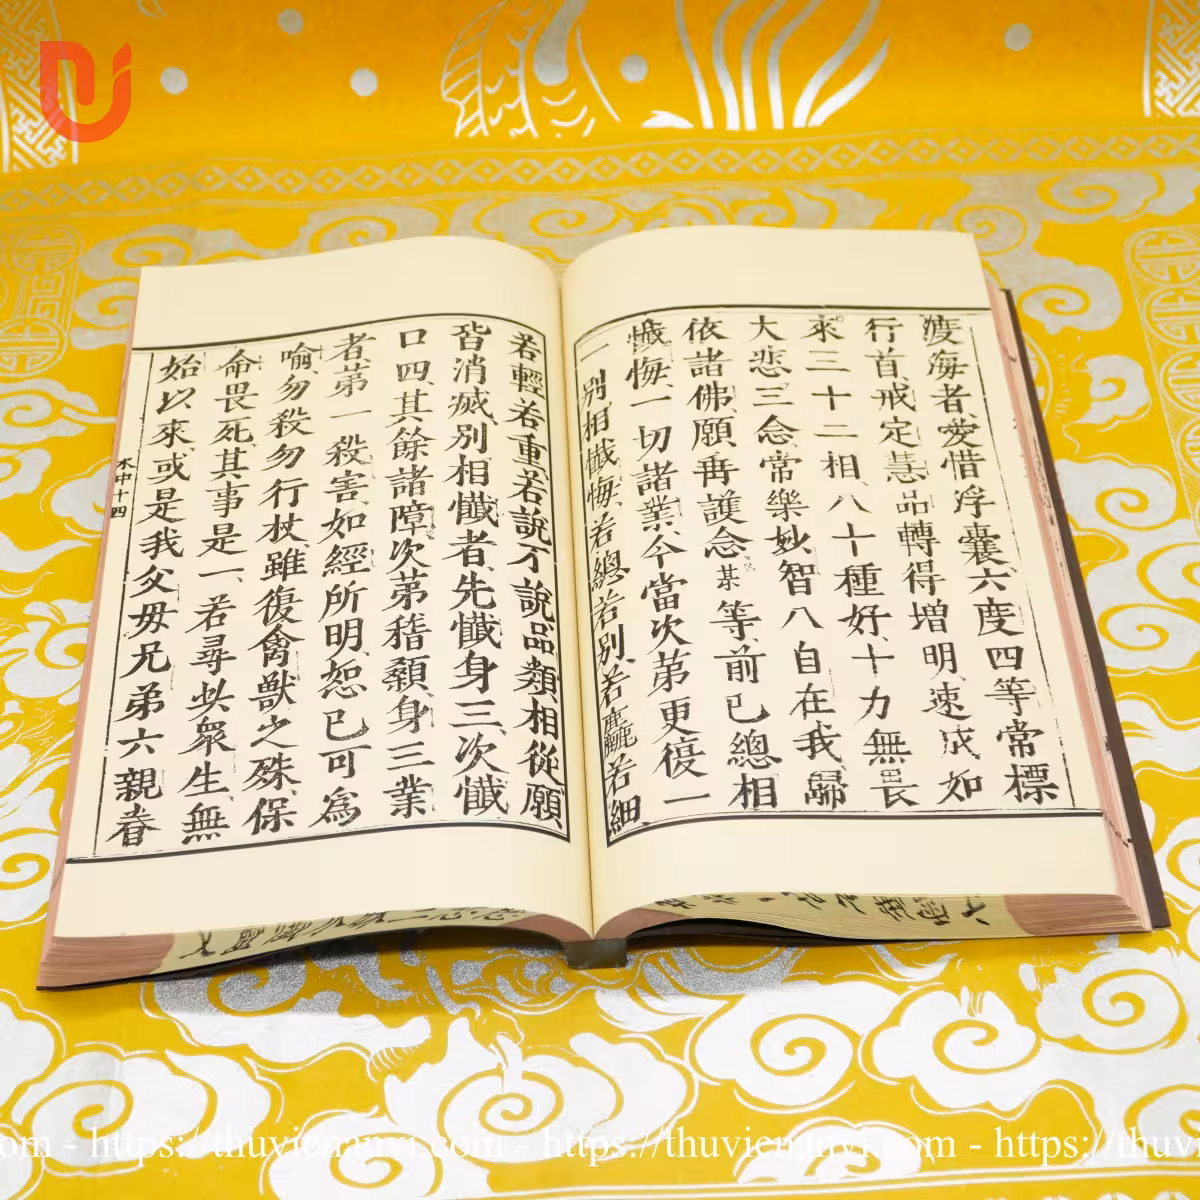 渡海者愛惜浮囊六度四等常標
行首戒定慧品轉得增明速成如
來三十二相八十種好十力無畏
大悲三念常樂妙智八自在我歸
依諸佛願再護念某等前已總相
懺悔一切諸業今當次第更復一
一別相懺悔若總若別若麤若細
若輕若重若說不說品類相從願
皆消滅別相懺者先懺身三次懺
口四其餘諸障次第稽顙身三業
者第一殺害如經所明恕已可為
喻勿殺勿行杖雖復禽獸之殊保
命畏死其事是一若尋此眾生無
始以來或是我父母兄弟六親眷
水中十四
https://thuviennvi.com - https://thuviennvi.com - https://thuvi